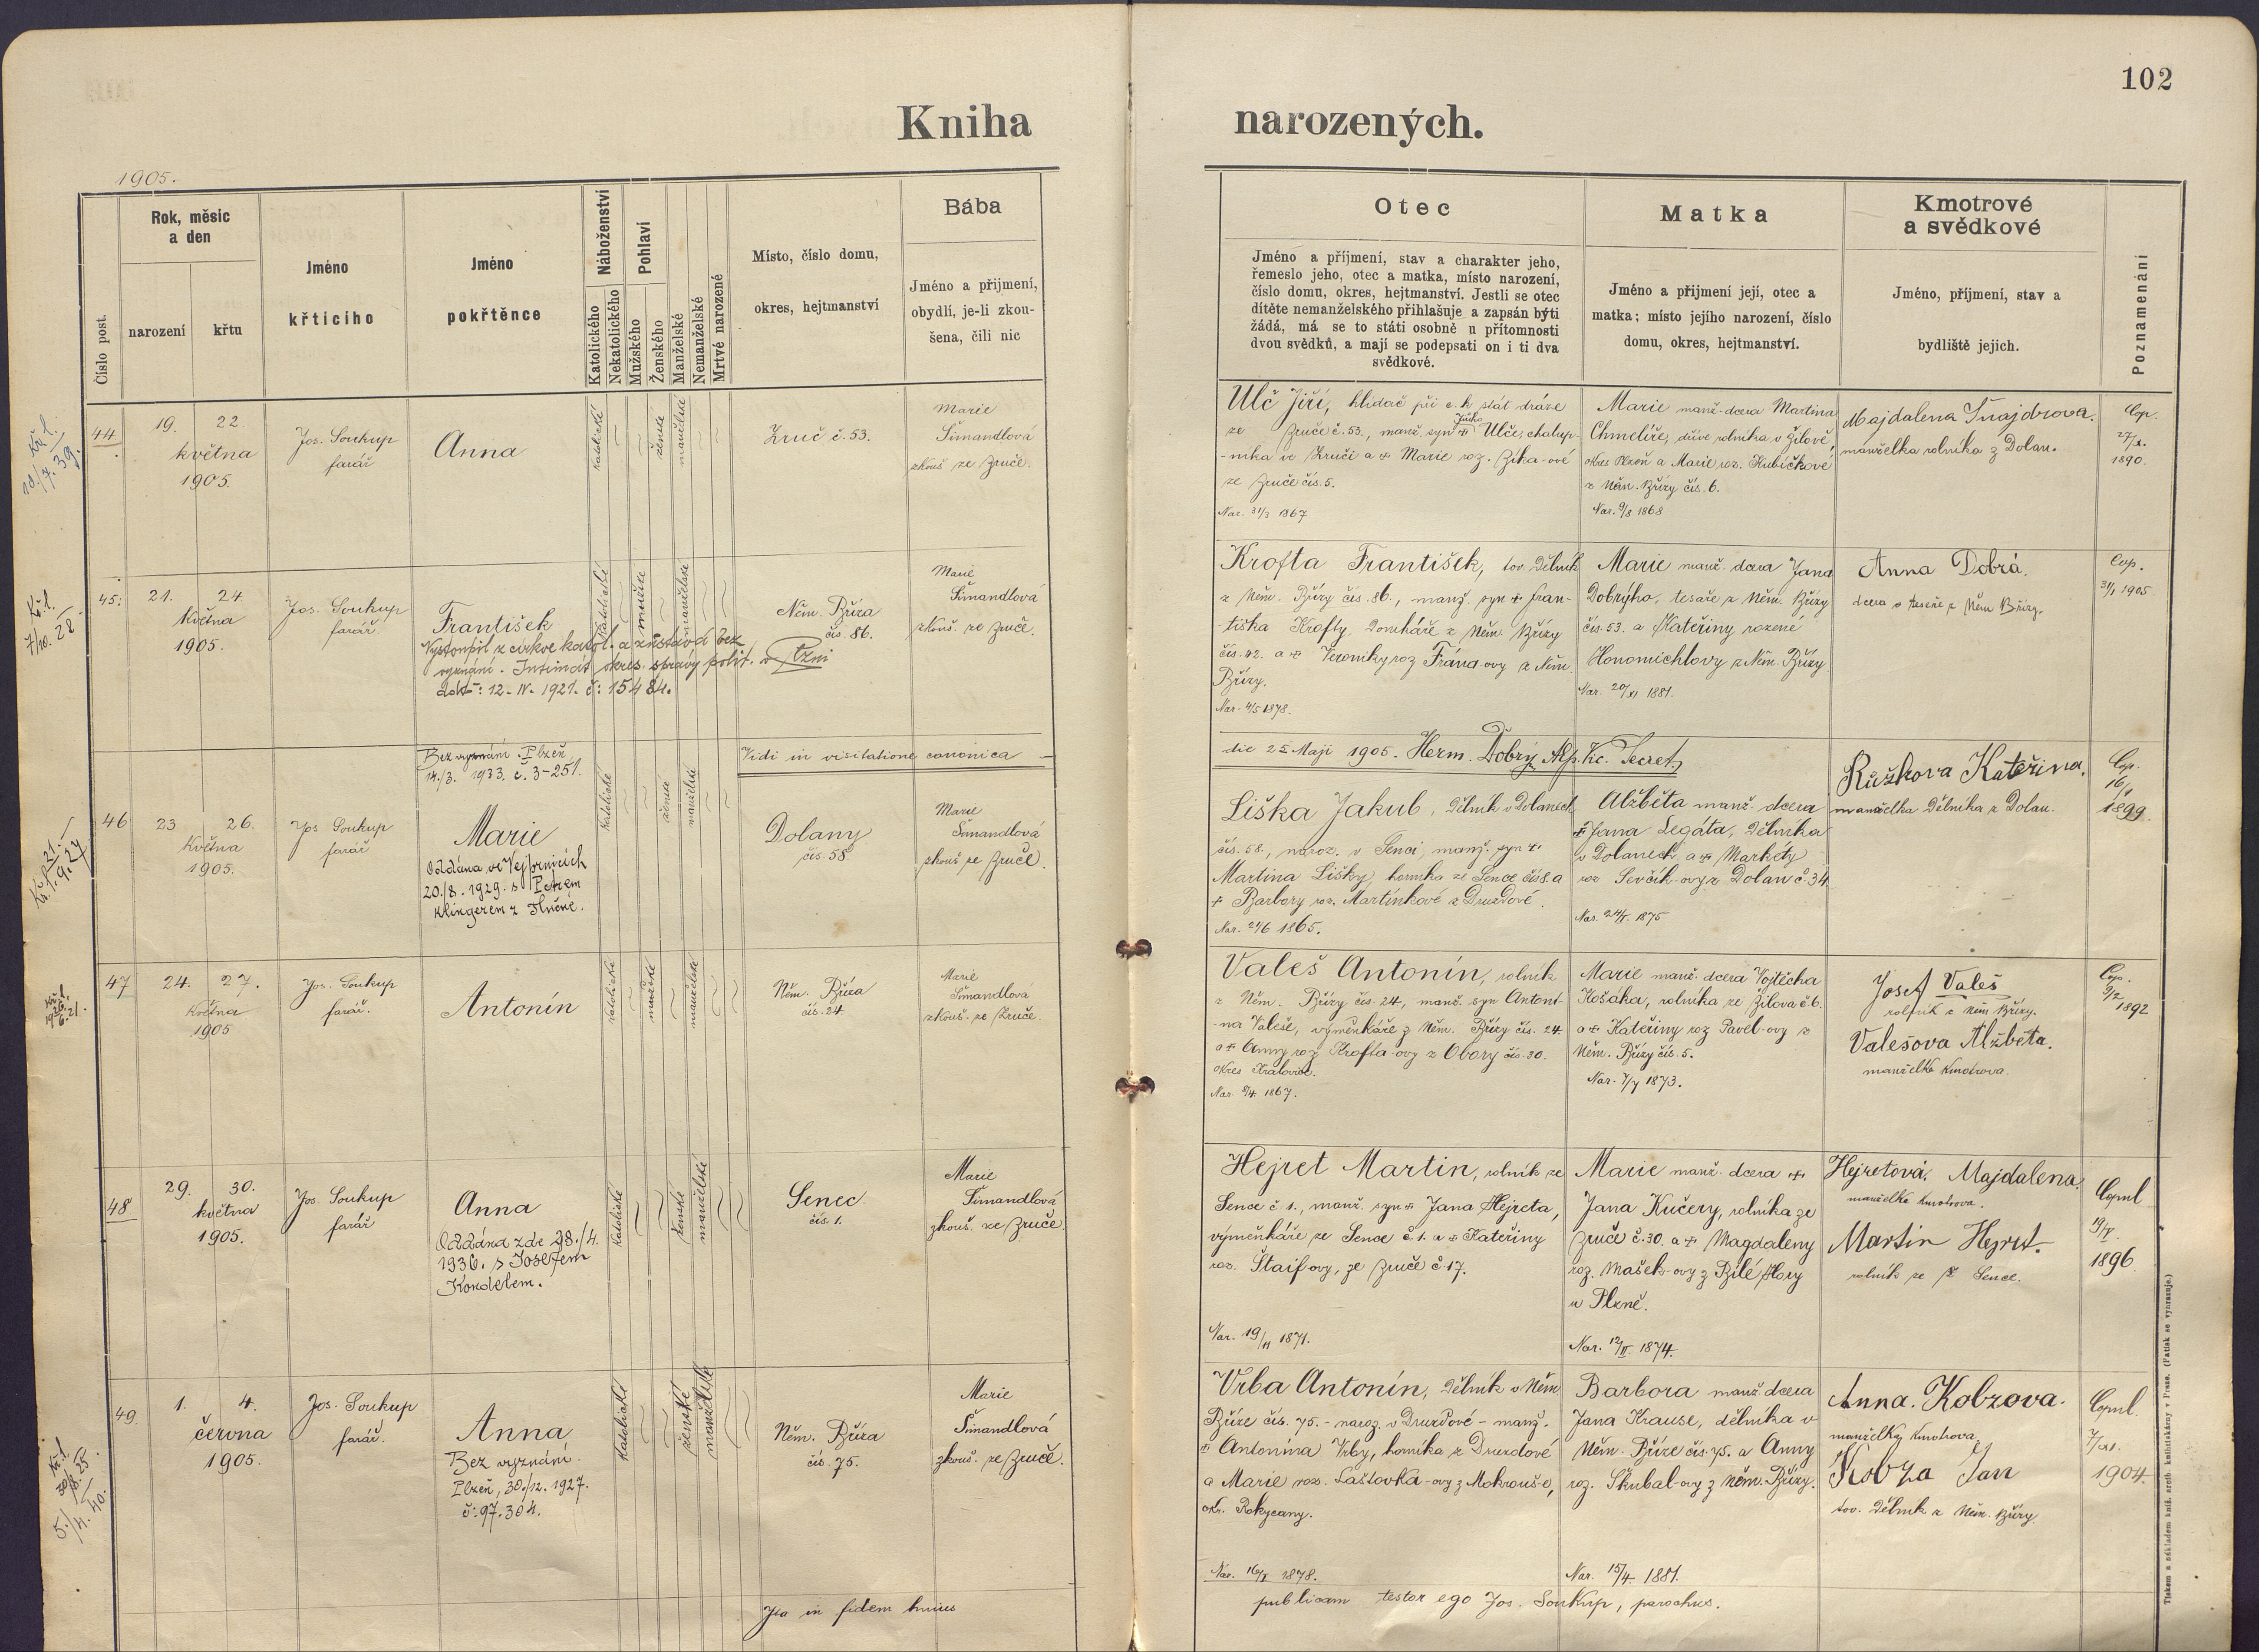 102
Kniha narozených.
1905.
Číslo post.
Rok, měsíc a den
narození
křtu
Jméno křticího
Jméno pokřtěnce
Náboženství
Katolického
Nekatolického
Pohlaví
Mužského
Ženského
Manželské
Nemanželské
Mrtvě narozené
Místo, číslo domu,
okres, hejtmanství
Bába
Jméno a přijmení,
obydlí, je-li zkou-
šena, čili nic
Otec
Jméno a příjmení, stav a charakter jeho,
řemeslo jeho, otec a matka, místo narození,
číslo domu, okres, hejtmanství. Jestli se otec
dítěte nemanželského přihlašuje a zapsán býti
žádá, má se to státi osobně u přítomnosti
dvou svědků, a mají se podepsati on i ti dva
svědkové.
Matka
Jméno a přijmení její, otec a
matka; místo jejího narození, číslo
domu, okres, hejtmanství.
Kmotrové
a svědkové
Jméno, příjmení, stav a
bydliště jejich.
Poznamenání
44
19. 22
května
1905.
Jos. Soukup
farář
Anna
katolické
ženské
manželské
Zruč č. 53.
Marie
Šimandlová
zkouš ze Zruče.
Ulč Jiří, hlídač při c. k. stát dráze
ze Zruče č. 53., manž. syn + Ulče, chalup-
-níka ve Zruči a + Marie roz. Zíka-ové
ze Zruče čís. 5.
Nar. 31/3 1867
Marie manž. dcera Martina
Chmelíře, dříve rolníka v Žilově,
okres Plzeň a Marie roz. Kubíčkové
z Něm. Břízy čís. 6.
Nar. 9/8 1868
Majdalena Šnajdrova.
manželka rolníka z Dolan.
Cop.
27/X.
1890.
45.
21. 24.
května
1905.
Jos. Soukup
farář
František
Vystoupil z církve katol. a zůstává bez
vyznání. Intimát okres. správy polit. v Plzni
ddto: 12-IV-1921. č: 15484.
katolické
mužské
manželské
Něm. Bříza
čís. 86.
Marie
Šimandlová
zkouš. ze Zruče.
Krofta František, tov. dělník
z Něm. Břízy čís. 86., manž. syn + Fran-
-tiška Krofty, domkáře z Něm. Břízy
čís. 42. a + Veroniky roz Frána-ovy z Něm.
Břízy.
Nar. 4/5 1878.
Marie manž. dcera Jana
Dobrýho, tesaře z Něm. Břízy
čís. 53. a Kateřiny rozené
Honomichlovy z Něm. Břízy
Nar. 20/XI 1881.
Anna Dobrá.
dcera tesaře z Něm Břízy.
Cop.
31/1 1905
Vidi in visitatione canonica
die 25 Maji 1905. Herm. Dobrý, Secret.
46
23 26.
května
1905.
Jos Soukup
farář
Bez vyznání. Plzeň
14./3. 1933. č. 3-251.
Marie
Oddána ve Vejprnicích
20./8. 1929. s Petrem
Klingerem z
katolické
ženské
manželské
Dolany
čís. 58
Marie
Šimandlová
zkouš ze Zruče.
Liška Jakub, dělník v Dolanech
čís. 58., naroz. v Senci, manž. syn +
Martina Lišky, horníka ze Sence čís 8. a
+ Barbory roz. Martínkové z Druzdové.
Nar. 24/6 1865.
Alžběta manž. dcera
+ Jana Legáta, dělníka
v Dolanech a + Markéty
roz Ševčík-ovy z Dolan č. 34
Nar. 24/V. 1875
Růžkova Kateřina.
manželka dělníka z Dolan.
Cop.
1899.
47
24. 27.
května
1905
Jos. Soukup
farář.
Antonín
katolické
mužské
manželské
Něm. Bříza
čís. 24.
Marie
Šimandlová
zkouš. ze Zruče.
Valeš Antonín, rolník
z Něm. Břízy čís. 24, manž. syn Antoní-
-na Valeše, výměnkáře z Něm. Břízy čís. 24.
a + Anny roz Krofta-ovy z Obory čís. 30.
okres Kralovice.
Nar. 1867.
Marie manž. dcera Vojtěcha
Košáka, rolníka ze Žilova č. 6.
a + Kateřiny roz Pavel-ovy z
Něm. Břízy čís. 5.
Nar. 1873.
Josef Valeš
rolník z Něm Břízy.
Valešova Alžběta.
manželka kmotrova.
Cop.
9/2
1892
48
29. 30.
května
1905.
Jos. Soukup
farář
Anna
Oddána zde 28./4.
1936. s Josefem
Kokdelem.
katolické
ženské
manželské
Senec
čís. 1.
Marie
Šimandlová
zkouš. ze Zruče.
Hejret Martin, rolník ze
Sence č 1., manž. syn + Jana Hejreta,
výměnkáře ze Sence č. 1. a + Kateřiny
roz. Štaif-ovy, ze Zruče č. 17.
Nar. 19/11 1871.
Marie manž. dcera +
Jana Kučery, rolníka ze
Zruče č. 30. a + Magdaleny
roz. Mašek-ovy z Bílé Hory
u Plzně.
Nar. 12/II. 1874.
Hejretová. Majdalena.
manželka kmotrova.
Martin Hejret.
rolník ze Sence.
Copul
1896
49.
1. 4.
června
1905.
Jos. Soukup
farář.
Anna
Bez vyznání.
Plzeň, 30./12. 1927.
č: 97.304.
katolické
ženské
manželské
Něm. Bříza
čís. 75.
Marie
Šimandlová
zkouš. ze Zruče.
Vrba Antonín, dělník v Něm
Bříze čís. 75. - naroz. v Druzdové - manž.
+ Antonína Vrby, horníka z Druzdové
a Marie roz. Laštovka-ovy z Mokrouš-e,
okr. Rokycany.
Nar. 1878.
Barbora manž dcera
Jana Krause, dělníka v
Něm. Bříze čís. 75. a Anny
roz. Škubal-ovy z Něm. Břízy.
Nar. 15/4. 1881.
Anna. Kobzova.
manželka kmotrova.
Kobza Jan
tov. dělník z Něm. Břízy
Copul.
7/XI.
1904.
Ita in fidem huius
publicam testor ego Jos. Soukup, parochus.